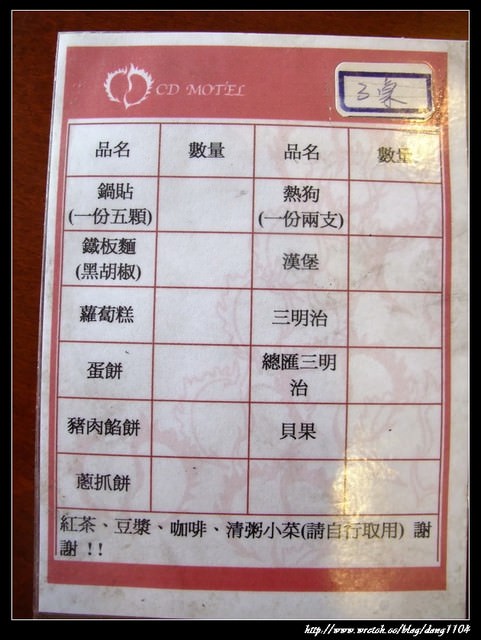 CD MOTEL
3桌
品名 數量 品名 數量
鍋貼 熱狗
(一份五顆) (一份兩支)
鐵板麵 漢堡
(黑胡椒)
蘿蔔糕 三明治
蛋餅 總匯三明
治
豬肉餡餅 貝果
蔥抓餅
紅茶、豆漿、咖啡、清粥小菜(請自行取用) 謝
謝 !!
http://www.wretch.cc/blog/dang1104